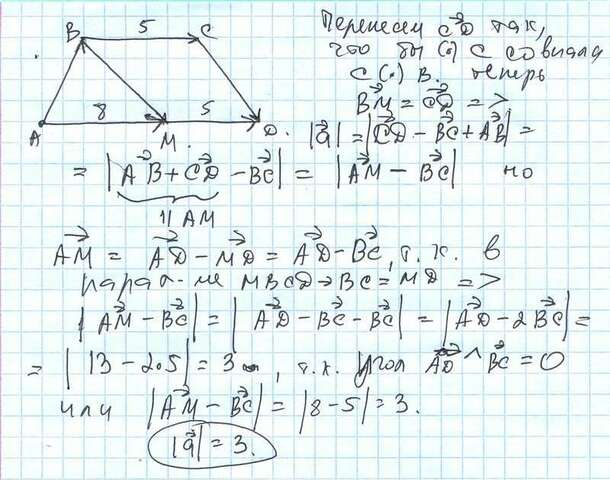 B 5 C
A 8 M 5 D.
Перенесем C⃗D так,
что бы (·) C совпала
с (·) B. теперь
B⃗M = C⃗D =>
|a⃗| = |C⃗D - B⃗C + A⃗B| =
= |A⃗B + C⃗D - B⃗C| = |A⃗M - B⃗C| но
|| AM
A⃗M = A⃗D - M⃗D = A⃗D - B⃗C, т.к. в
парал-ме MBCD → BC = MD =>
|A⃗M - B⃗C| = |A⃗D - B⃗C - B⃗C| = |A⃗D - 2B⃗C| =
= |13 - 2·5| = 3, т.к. угол A⃗D ^ B⃗C = 0
или |A⃗M - B⃗C| = |8 - 5| = 3.
|a⃗| = 3.